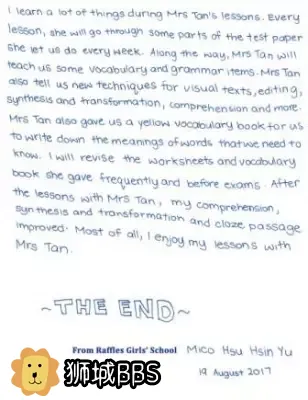 I learn a lot of things during Mrs Tan's lessons. Every
lesson, she will go through some parts of the test paper
she let us do every week. Along the way, Mrs Tan will
teach us some vocabulary and grammar items. Mrs Tan
also tell us new techniques for visual texts, editing,
synthesis and transformation, comprehension and more.
Mrs Tan also gave us a yellow vocabulary book for us
to write down the meanings of words that we need to
know. I will revise the worksheets and vocabulary
book she gave frequently and before exams. After
the lessons with Mrs Tan, my comprehension,
synthesis and transformation and cloze passage
improved. Most of all, I enjoy my lessons with
Mrs Tan.
~THE END~
From Raffles Girls' School Mico Hsu Hsin Yu
19 August 2017
狮城BBS